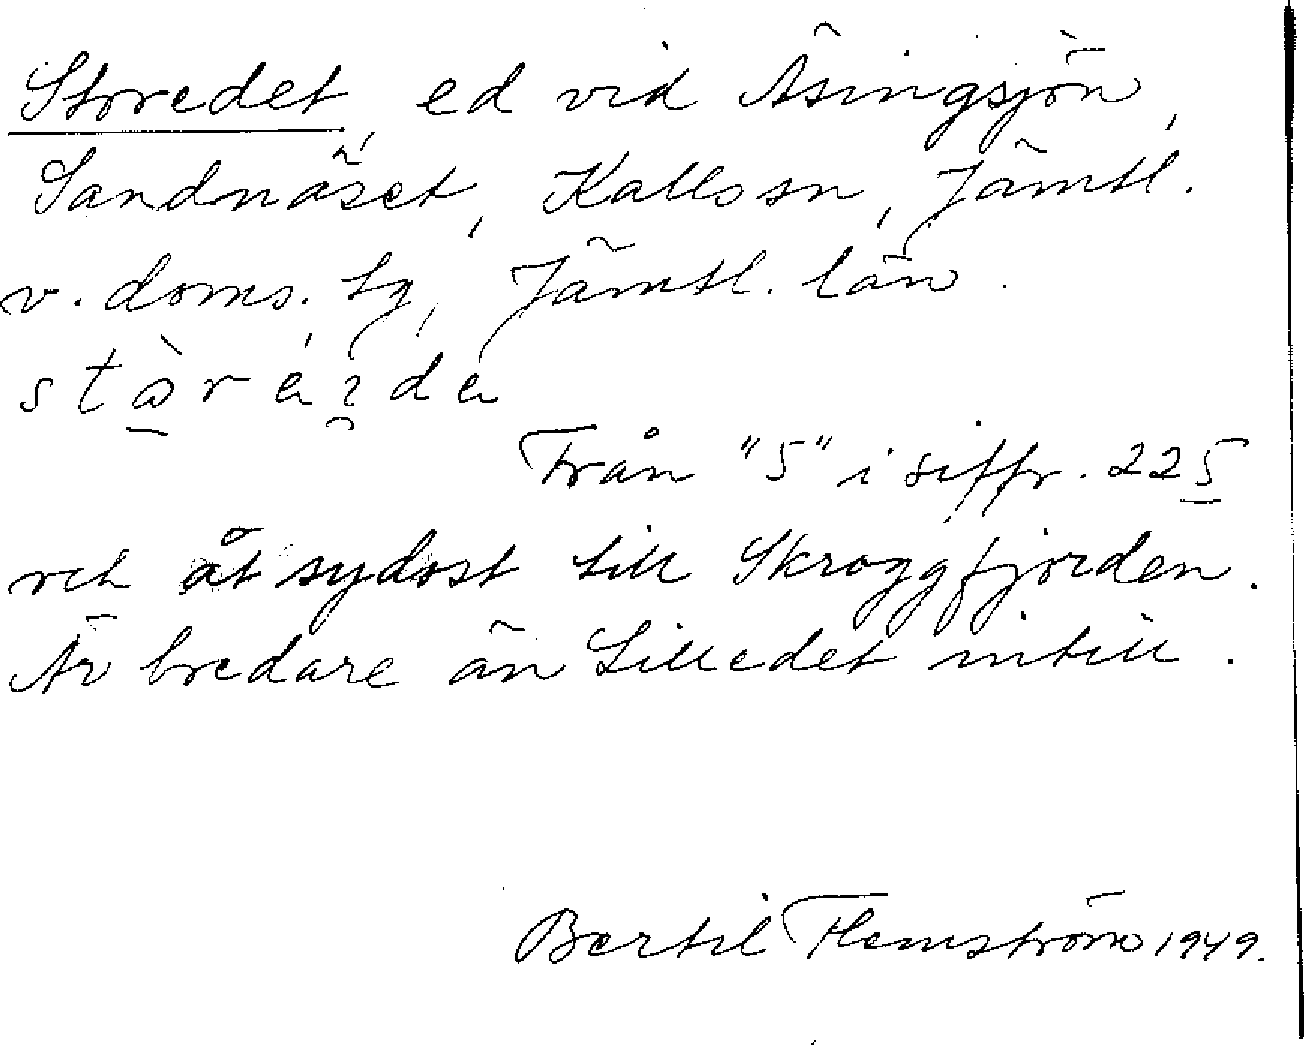 Storedet, ed vid Äsingsjön,
Sandnäset, Kalls sn, Jämtl.
v. doms. tg, Jämtl. län.
Från "5" i siffr. 225
och åt sydost till Skroggfjorden.
Är bredare än Lilledet intill.
Bertil Flemström 1949.